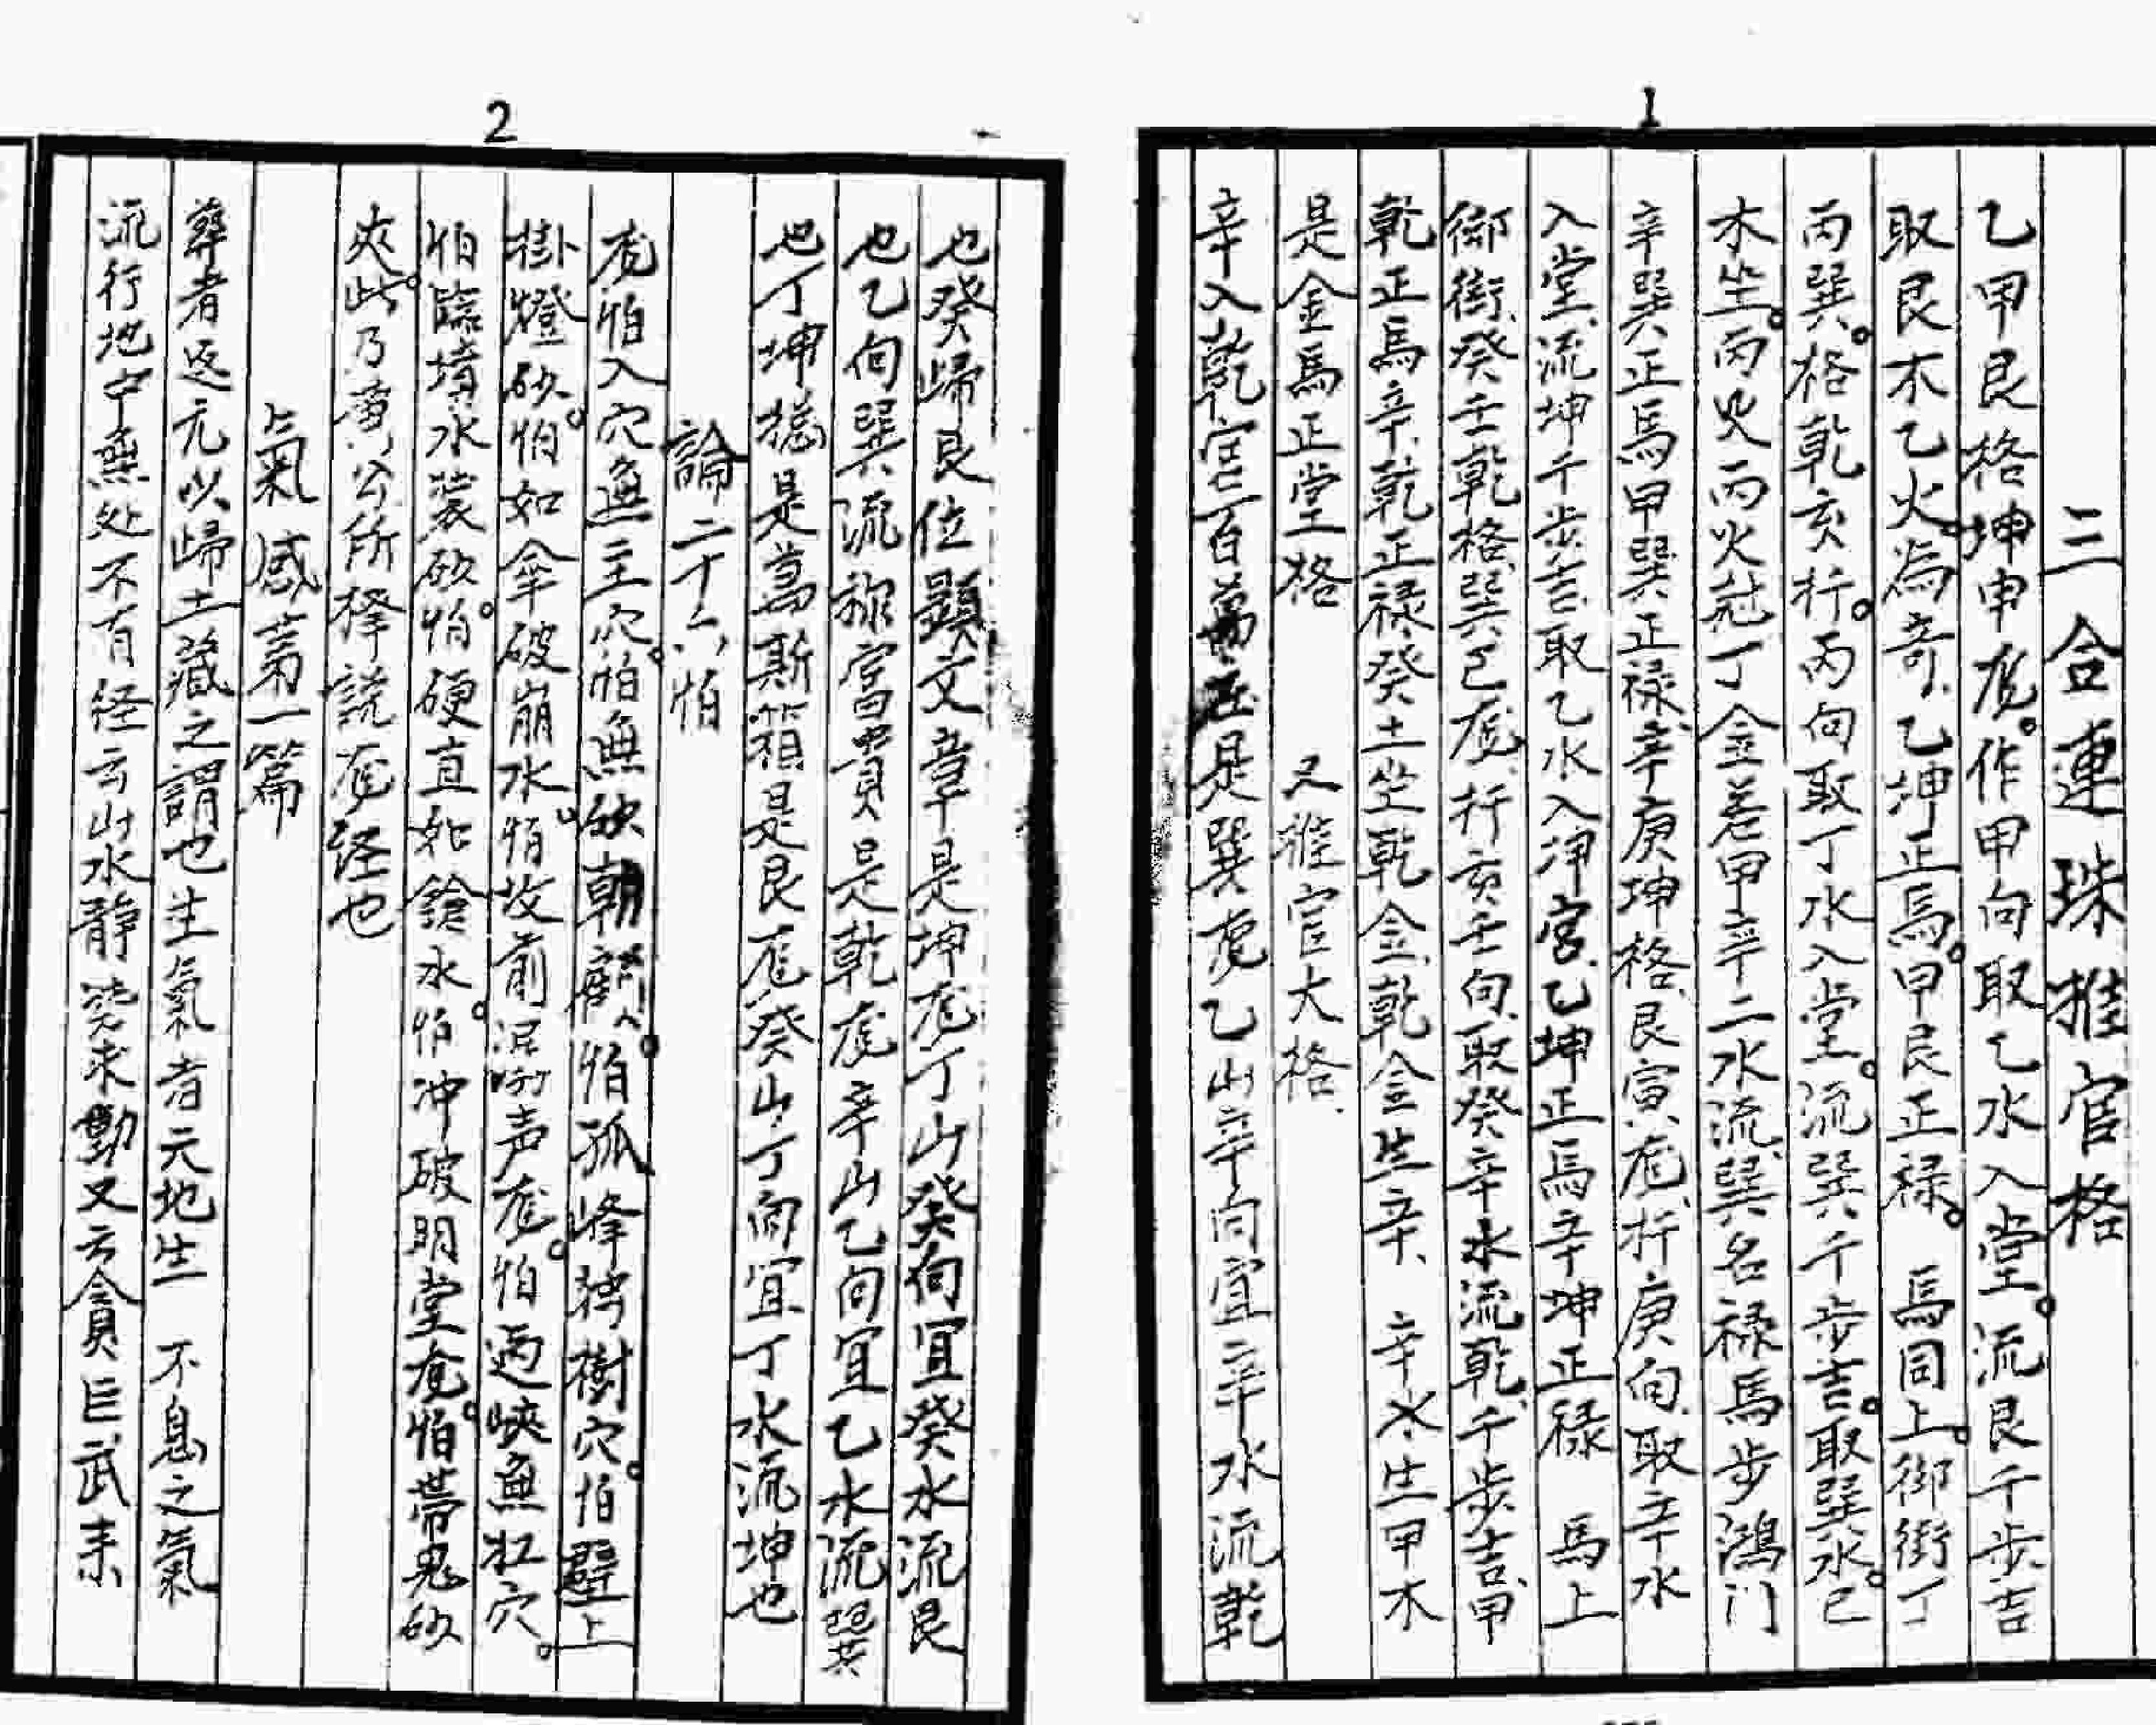 1
三合連珠推官格
乙甲艮格坤申龙。作甲向取乙水入堂。流艮千步吉
取艮木乙火。為奇、乙坤正馬。甲艮正禄。馬同上。御街丁
丙巽。格乾亥行。丙向取丁水入堂。流巽千步吉。取巽水。已
木生。丙火丙火 丁金差甲辛二水流、巽名禄馬步鴻门
辛巽正馬甲巽正禄、辛庚坤格、艮寅龙、行庚向、取辛水
入堂、流坤千步吉、取乙水入 宮、乙坤正馬辛坤正禄 馬上
御街、癸壬乾格、巽巳龙、行亥壬向、取癸辛水流乾、千步吉、甲
乾正馬辛、乾正禄癸土坐乾金、乾金生辛、辛水生甲木
是金馬正堂格 又推官大格、
辛入乾宫百萬 是巽龙乙山辛向宜辛水流乾
2
也癸歸艮位顕文章是坤龙丁山癸向宜癸水流艮
也乙向巽流 富貴是乾龙辛山乙向宜乙水流巽
也丁坤 是萬斯箱是艮龙癸山丁向宜丁水流坤也
論二十六怕
龙怕入穴無主穴。怕無 朝 。怕孤峰 樹穴。怕壁上
掛燈砂。怕如伞破崩水。怕 前 声龙。怕過峽無 穴。
怕臨墳水裝砂。怕硬直如鎗水。怕冲破明堂龙。怕带鬼砂
夾。此乃黄公所擇説龙経也
氣感苐一篇
葬者返元以歸土藏之謂也生氣者天地生 不息之氣
流行地中無处不有経云山水静 求動又云貪巨武来